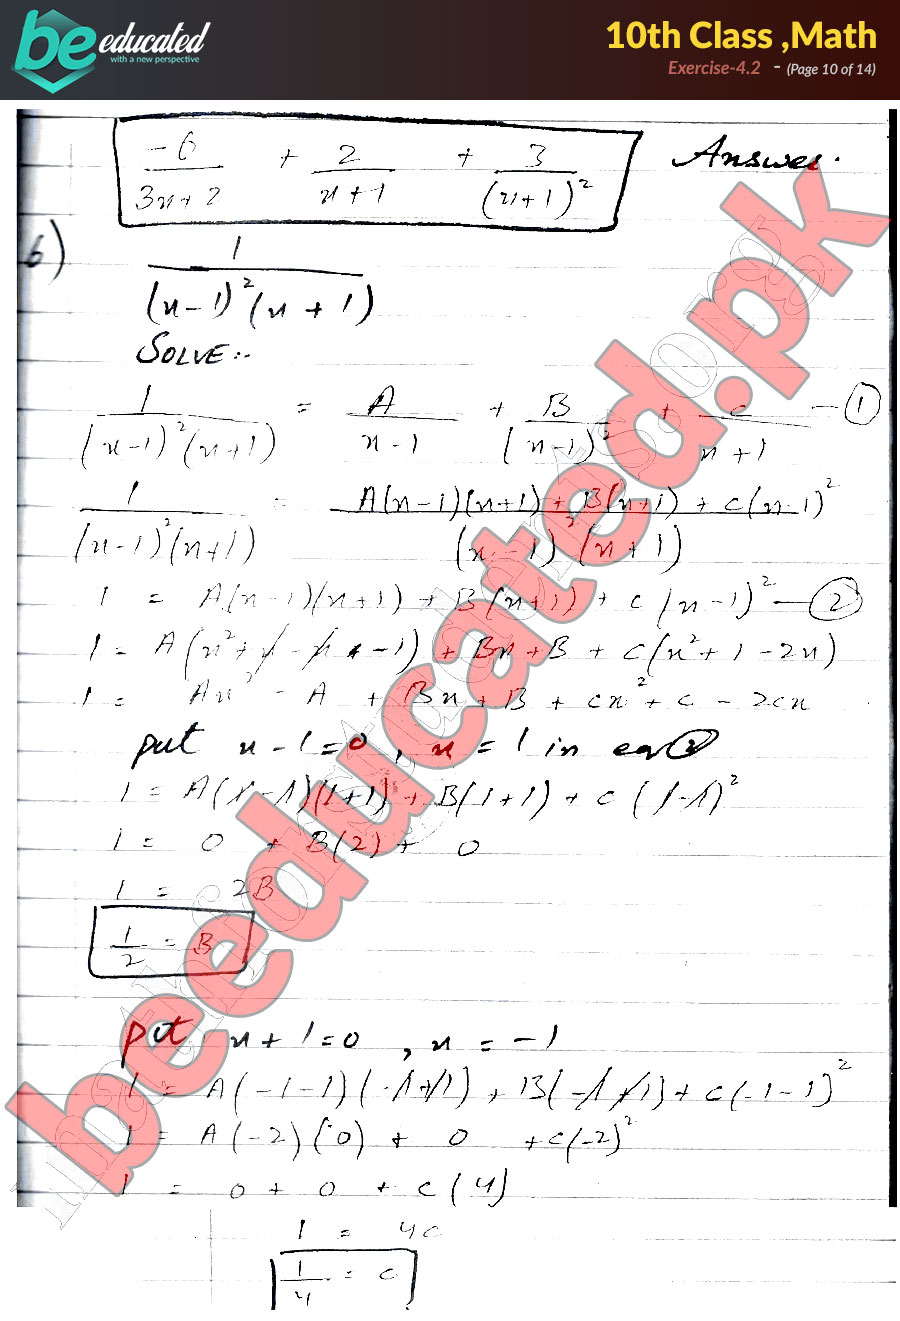 be educated
with a new perspective
10th Class ,Math
Exercise-4.2 - (Page 10 of 14)
-6/(3x+2) + 2/(x+1) + 3/(x+1)² Answer.
6)
1/((x-1)²(x+1))
SOLVE:-
1/((x-1)²(x+1)) = A/(x-1) + B/(x-1)² + C/(x+1) — ①
1/((x-1)²(x+1)) = (A(x-1)(x+1) + B(x+1) + C(x-1)²)/((x-1)²(x+1))
1 = A(x-1)(x+1) + B(x+1) + C(x-1)² — ②
1 = A(x²+x-x-1) + Bx+B + C(x²+1-2x)
1 = Ax² - A + Bx+B + Cx²+C - 2Cx
put x-1=0, x=1 in eq ②
1 = A(1-1)(1+1) + B(1+1) + C(1-1)²
1 = 0 + B(2) + 0
1 = 2B
1/2 = B
put x+1=0, x=-1
1 = A(-1-1)(-1+1) + B(-1+1) + C(-1-1)²
1 = A(-2)(0) + 0 + C(-2)²
1 = 0 + 0 + C(4)
1 = 4C
1/4 = C
beeducated.pk